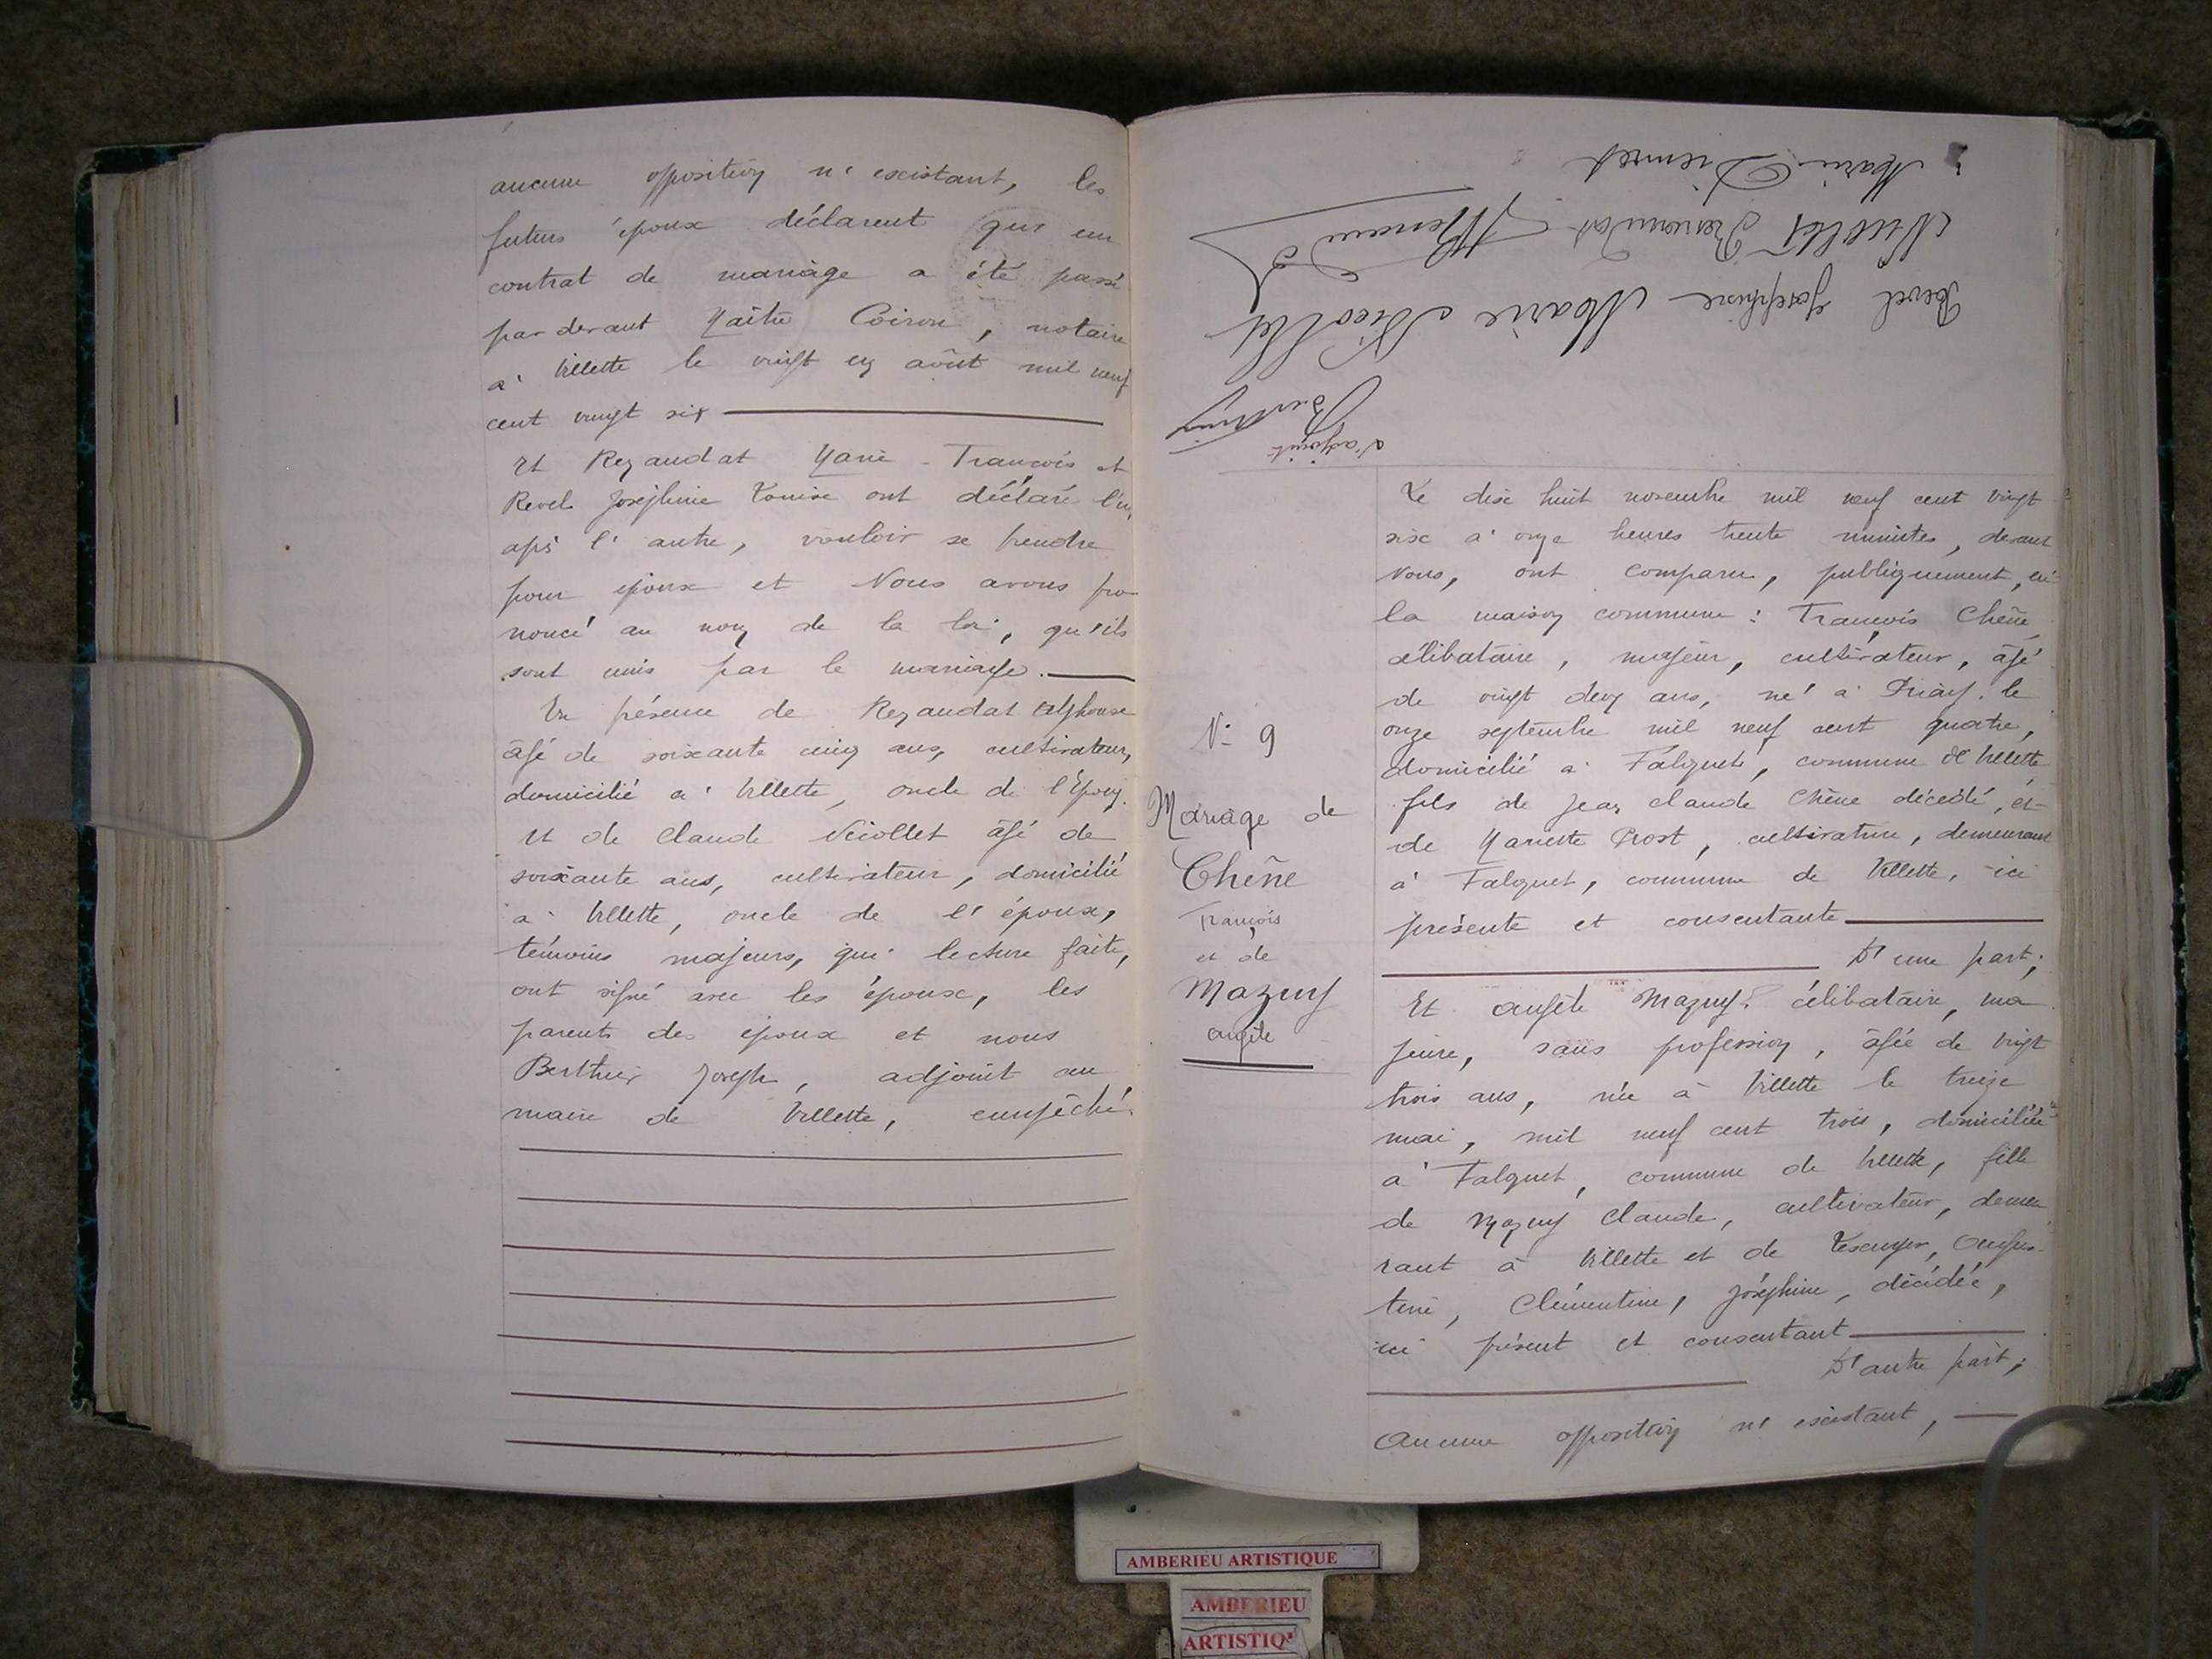 aucune opposition n'existant, les
futurs époux déclarent que un
contrat de mariage a été passé
par devant Maître Coiron, notaire
à Villette le vingt un août mil neuf
cent vingt six
Et Reyaudat Marie-François et
Revel Joséphine Louise ont déclaré l'un
après l'autre, vouloir se prendre
pour époux et Nous avons pro
noncé au nom de la loi, qu'ils
sont unis par le mariage.
En présence de Reyaudat Alphonse
âgé de soixante cinq ans, cultivateur,
domicilié à Villette, oncle de l'Epoux.
Et de Claude Nicollet âgé de
soixante ans, cultivateur, domicilié
à Villette, oncle de l'époux,
témoins majeurs, qui lecture faite,
ont signé avec les époux, les
parents des époux et nous
Berthier Joseph, adjoint au
maire de Villette, empêché.
Marie
Nicollet
Revel Joséphine Marie Nicollet
L'adjoint
N° 9
Mariage de
Chêne
François
et de
Mazuy
Angèle
Le dix huit novembre mil neuf cent vingt
six à onze heures trente minutes, devant
Nous, ont comparu, publiquement, en
la maison commune : François Chêne
célibataire, majeur, cultivateur, âgé
de vingt deux ans, né à Priay, le
onze septembre mil neuf cent quatre,
domicilié à Falquet, commune de Villette
fils de Jean Claude Chêne décédé, et
de Mariette Prost, cultivatrice, demeurant
à Falquet, commune de Villette, ici
présente et consentante
D'une part;
Et Angèle Mazuy, célibataire, ma
jeure, sans profession, âgée de vingt
trois ans, née à Villette le treize
mai, mil neuf cent trois, domiciliée
à Falquet, commune de Villette, fille
de Mazuy Claude, cultivateur, demeu
rant à Villette et de Lescuyer, Augus
tine, Clémentine, Joséphine, décédée,
ici présent et consentant
D'autre part;
Aucune opposition n'existant,
AMBERIEU ARTISTIQUE
AMBERIEU
ARTISTIQ